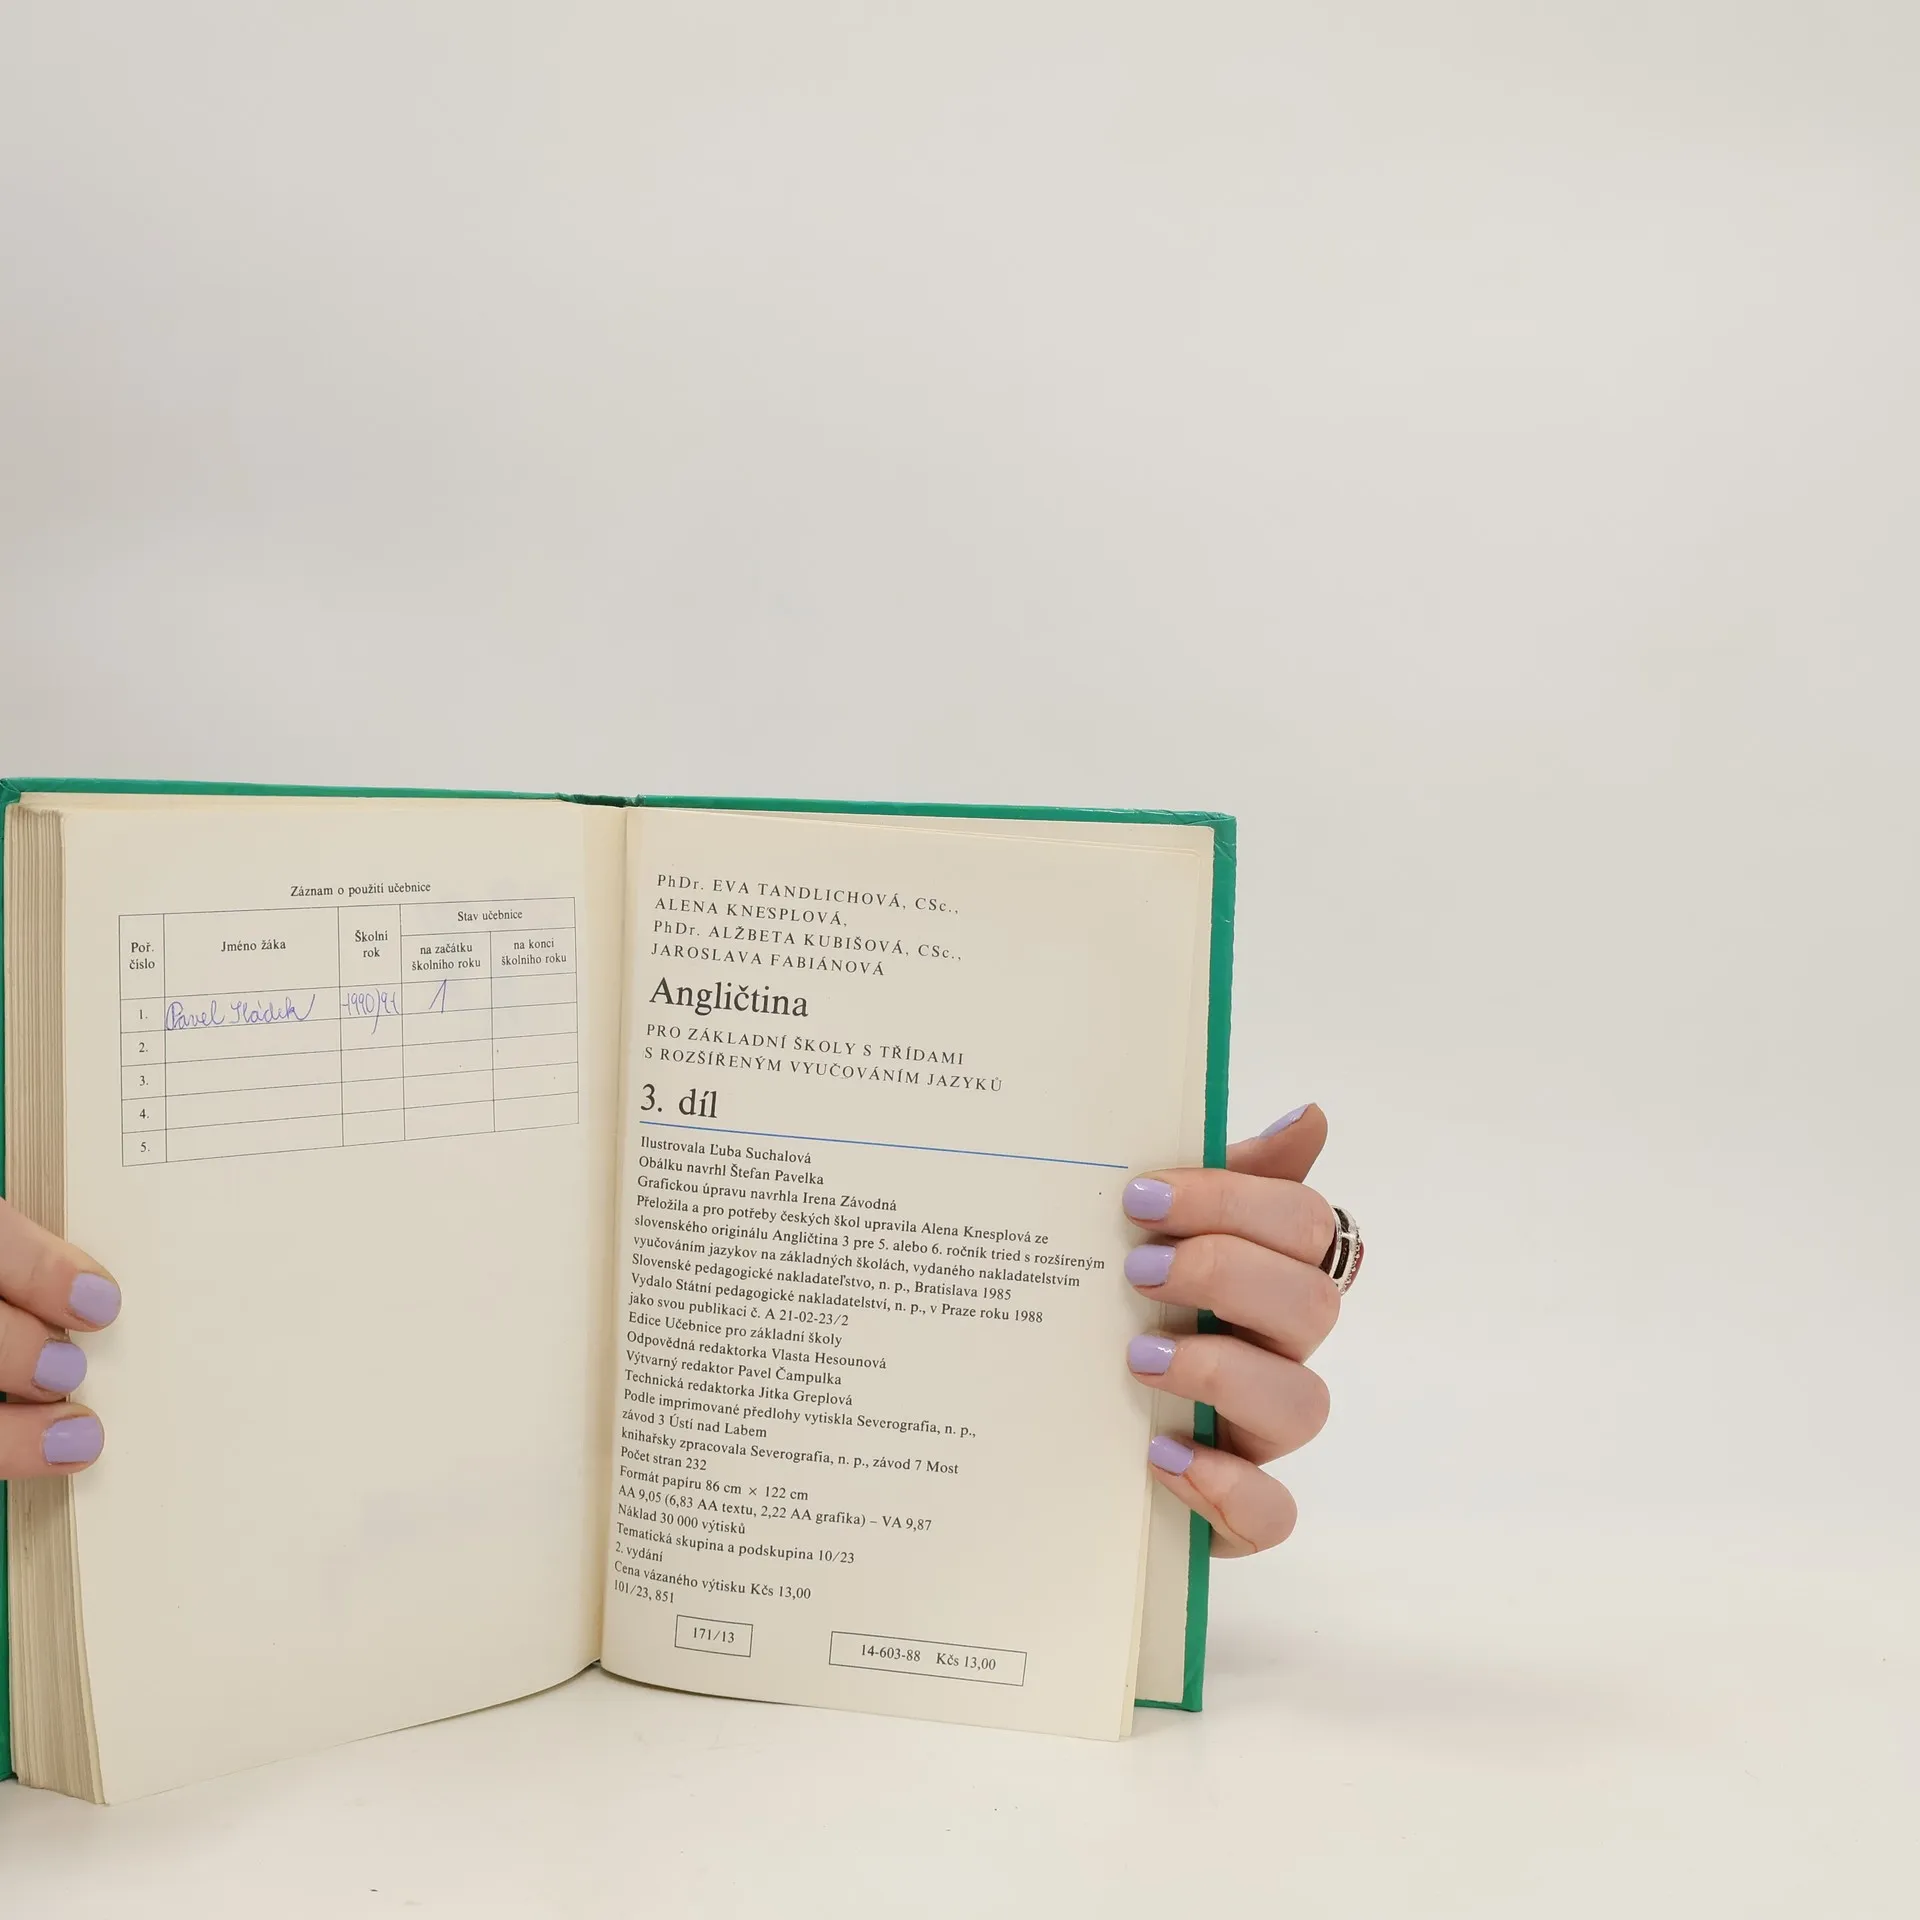 Záznam o použití učebnice
Poř. číslo
Jméno žáka
Školní rok
Stav učebnice
na začátku školního roku
na konci školního roku
1. Pavel Sládek 1990/91 1
2.
3.
4.
5.
PhDr. EVA TANDLICHOVÁ, CSc.,
ALENA KNESPLOVÁ,
PhDr. ALŽBETA KUBIŠOVÁ, CSc.,
JAROSLAVA FABIÁNOVÁ
Angličtina
PRO ZÁKLADNÍ ŠKOLY S TŘÍDAMI
S ROZŠÍŘENÝM VYUČOVÁNÍM JAZYKŮ
3. díl
Ilustrovala Ľuba Suchalová
Obálku navrhl Štefan Pavelka
Grafickou úpravu navrhla Irena Závodná
Přeložila a pro potřeby českých škol upravila Alena Knesplová ze
slovenského originálu Angličtina 3 pre 5. alebo 6. ročník tried s rozšíreným
vyučováním jazykov na základných školách, vydaného nakladatelstvím
Slovenské pedagogické nakladateľstvo, n. p., Bratislava 1985
Vydalo Státní pedagogické nakladatelství, n. p., v Praze roku 1988
jako svou publikaci č. A 21-02-23/2
Edice Učebnice pro základní školy
Odpovědná redaktorka Vlasta Hesounová
Výtvarný redaktor Pavel Čampulka
Technická redaktorka Jitka Greplová
Podle imprimované předlohy vytiskla Severografia, n. p.,
závod 3 Ústí nad Labem
knihařsky zpracovala Severografia, n. p., závod 7 Most
Počet stran 232
Formát papíru 86 cm × 122 cm
AA 9,05 (6,83 AA textu, 2,22 AA grafika) – VA 9,87
Náklad 30 000 výtisků
Tematická skupina a podskupina 10/23
2. vydání
Cena vázaného výtisku Kčs 13,00
101/23, 851
171/13
14-603-88 Kčs 13,00